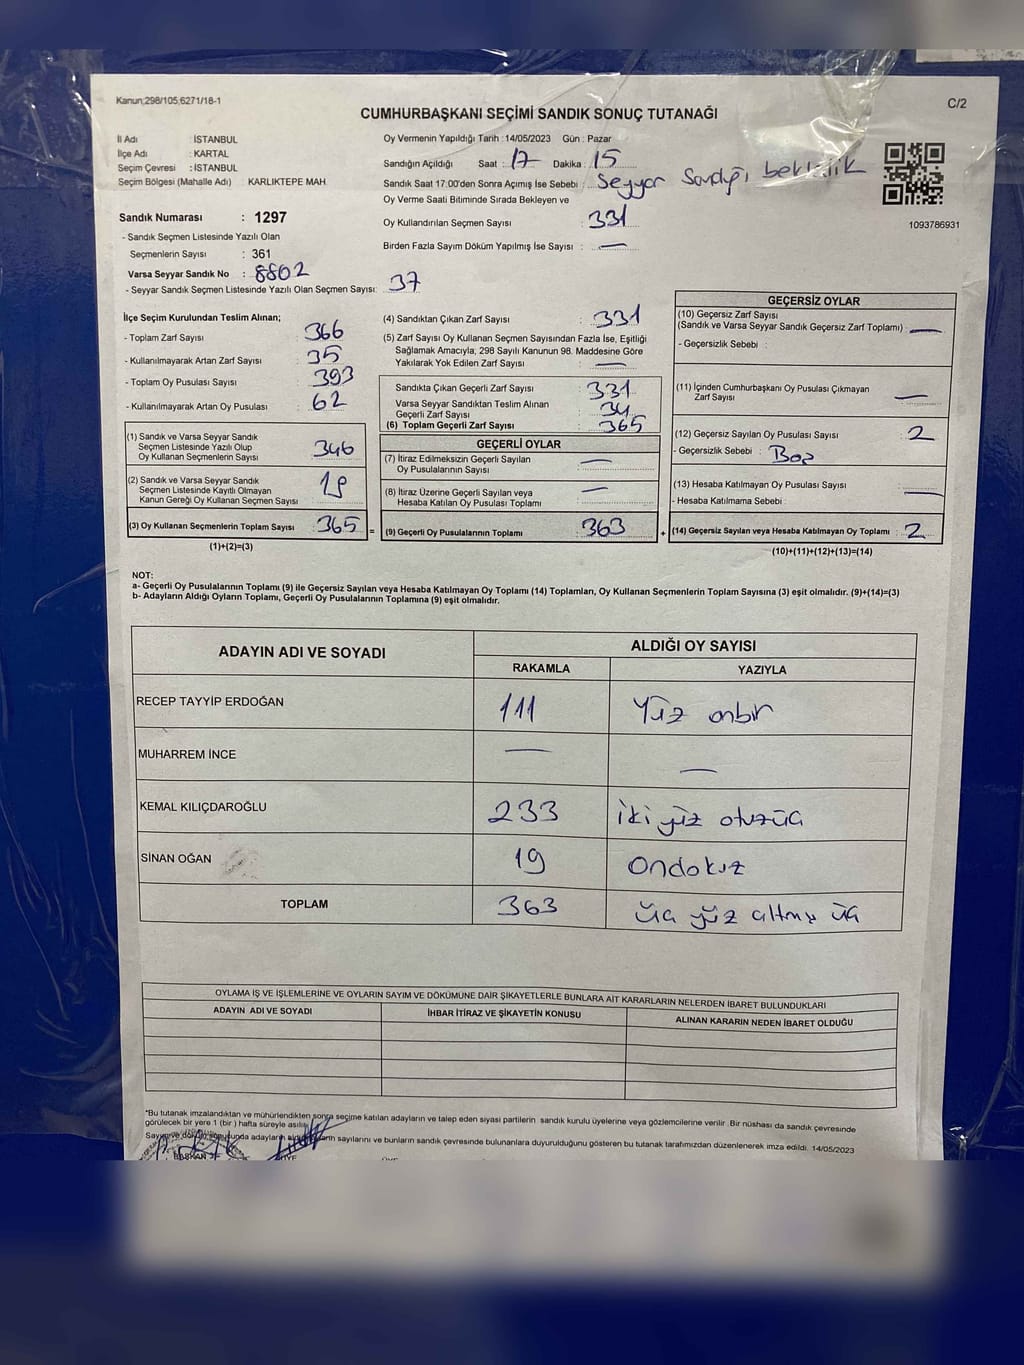 Kanun;298/105,6271/18-1
C/2
CUMHURBAŞKANI SEÇİMİ SANDIK SONUÇ TUTANAĞI
İl Adı : İSTANBUL
İlçe Adı : KARTAL
Seçim Çevresi : İSTANBUL
Seçim Bölgesi (Mahalle Adı) KARLIKTEPE MAH.
Sandık Numarası : 1297
- Sandık Seçmen Listesinde Yazılı Olan
Seçmenlerin Sayısı : 361
Varsa Seyyar Sandık No : 8802
- Seyyar Sandık Seçmen Listesinde Yazılı Olan Seçmen Sayısı: 37
Oy Vermenin Yapıldığı Tarih : 14/05/2023 Gün : Pazar
Sandığın Açıldığı Saat : 17 Dakika : 15
Sandık Saat 17:00'den Sonra Açımış İse Sebebi : Seyyar Sandığı bekledik
Oy Verme Saati Bitiminde Sırada Bekleyen ve
Oy Kullandırılan Seçmen Sayısı : 331
Birden Fazla Sayım Döküm Yapılmış İse Sayısı : —
1093786931
İlçe Seçim Kurulundan Teslim Alınan;
- Toplam Zarf Sayısı : 366
- Kullanılmayarak Artan Zarf Sayısı : 35
- Toplam Oy Pusulası Sayısı : 393
- Kullanılmayarak Artan Oy Pusulası : 62
(1) Sandık ve Varsa Seyyar Sandık
Seçmen Listesinde Yazılı Olup
Oy Kullanan Seçmenlerin Sayısı 346
(2) Sandık ve Varsa Seyyar Sandık
Seçmen Listesinde Kayıtlı Olmayan
Kanun Gereği Oy Kullanan Seçmen Sayısı 19
(3) Oy Kullanan Seçmenlerin Toplam Sayısı 365 =
(1)+(2)=(3)
(4) Sandıktan Çıkan Zarf Sayısı : 331
(5) Zarf Sayısı Oy Kullanan Seçmen Sayısından Fazla İse, Eşitliği
Sağlamak Amacıyla, 298 Sayılı Kanunun 98. Maddesine Göre
Yakılarak Yok Edilen Zarf Sayısı : —
Sandıkta Çıkan Geçerli Zarf Sayısı : 331
Varsa Seyyar Sandıktan Teslim Alınan
Geçerli Zarf Sayısı : 34
(6) Toplam Geçerli Zarf Sayısı : 365
GEÇERLİ OYLAR
(7) İtiraz Edilmeksizin Geçerli Sayılan
Oy Pusulalarının Sayısı : —
(8) İtiraz Üzerine Geçerli Sayılan veya
Hesaba Katılan Oy Pusulası Toplamı : —
(9) Geçerli Oy Pusulalarının Toplamı : 363 +
GEÇERSİZ OYLAR
(10) Geçersiz Zarf Sayısı
(Sandık ve Varsa Seyyar Sandık Geçersiz Zarf Toplamı) : —
- Geçersizlik Sebebi :
(11) İçinden Cumhurbaşkanı Oy Pusulası Çıkmayan
Zarf Sayısı : —
(12) Geçersiz Sayılan Oy Pusulası Sayısı : 2
- Geçersizlik Sebebi : Boş
(13) Hesaba Katılmayan Oy Pusulası Sayısı : —
- Hesaba Katılmama Sebebi :
(14) Geçersiz Sayılan veya Hesaba Katılmayan Oy Toplamı : 2
(10)+(11)+(12)+(13)=(14)
NOT:
a- Geçerli Oy Pusulalarının Toplamı (9) ile Geçersiz Sayılan veya Hesaba Katılmayan Oy Toplamı (14) Toplamları, Oy Kullanan Seçmenlerin Toplam Sayısına (3) eşit olmalıdır. (9)+(14)=(3)
b- Adayların Aldığı Oyların Toplamı, Geçerli Oy Pusulalarının Toplamına (9) eşit olmalıdır.
ADAYIN ADI VE SOYADI ALDIĞI OY SAYISI
RAKAMLA YAZIYLA
RECEP TAYYİP ERDOĞAN 111 Yüz onbir
MUHARREM İNCE — —
KEMAL KILIÇDAROĞLU 233 iki yüz otuzüç
SİNAN OĞAN 19 Ondokuz
TOPLAM 363 üç yüz altmış üç
OYLAMA İŞ VE İŞLEMLERİNE VE OYLARIN SAYIM VE DÖKÜMÜNE DAİR ŞİKAYETLERLE BUNLARA AİT KARARLARIN NELERDEN İBARET BULUNDUKLARI
ADAYIN ADI VE SOYADI İHBAR İTİRAZ VE ŞİKAYETİN KONUSU ALINAN KARARIN NEDEN İBARET OLDUĞU
*Bu tutanak imzalandıktan ve mühürlendikten sonra seçime katılan adayların ve talep eden siyasi partilerin sandık kurulu üyelerine veya gözlemcilerine verilir. Bir nüshası da sandık çevresinde
görülecek bir yere 1 (bir) hafta süreyle asılır.
Sayım ve döküm sonunda adayların sayılarını ve bunların sandık çevresinde bulunanlara duyurulduğunu gösteren bu tutanak tarafımızdan düzenlenerek imza edildi. 14/05/2023
BAŞKAN ÜYE